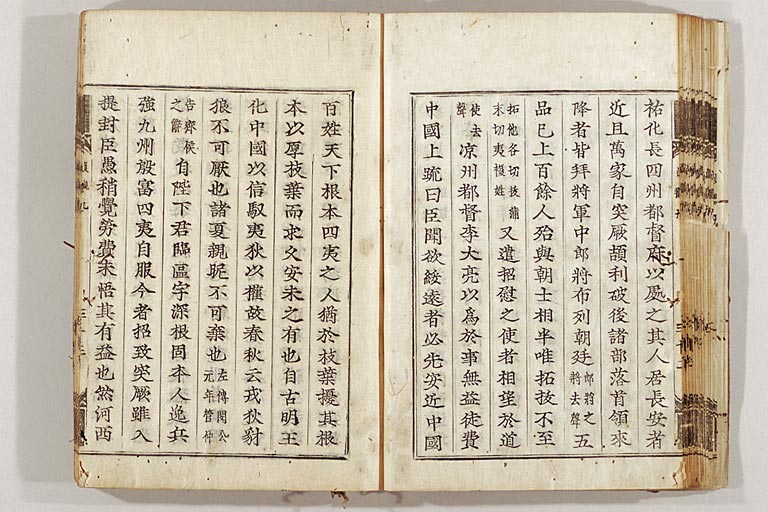 祐化長四州都督府以處之其人居長安者
近且萬家自突厥頡利破後諸部落首領來
降者皆拜將軍中郎將布列朝廷郎將之將去聲五
品已上百餘人殆與朝士相半唯拓技不至
拓他各切技蒲末切夷複姓又遣招慰之使者相望於道
使去聲涼州都督李大亮以爲於事無益徒費
中國上疏曰臣聞欲綏遠者必先安近中國
百姓天下根本四夷之人猶於枝葉擾其根
本以厚枝葉而求久安未之有也自古明王
化中國以信馭夷狄以權故春秋云戎狄豺
狼不可厭也諸夏親昵不可棄也左傳閔公元年管仲
告齊侯之辭自陛下君臨區宇深根固本人逸兵
強九州殷富四夷自服今者招致突厥雖入
提封臣愚稍覺勞費未悟其有益也然河西